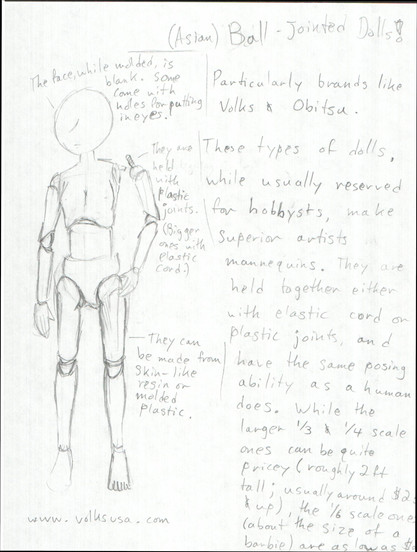 (Asian) Ball-Jointed Dolls!
The face, while molded, is
blank. Some
come with
holes for putting
in eyes!
Particularly brands like
Volks & Obitsu.
They are
held
with
plastic
joints.
(Bigger
ones with
elastic
cord.)
These types of dolls,
while usually reserved
for hobbysts, make
superior artists
mannequins. They are
held together either
with elastic cord or
plastic joints, and
have the same posing
ability as a human
does. While the
larger 1/3 & 1/4 scale
ones can be quite
pricey (roughly 2ft
tall; usually around $2
& up), the 1/6 scale one
(about the size of a
barbie) are as low as $
They can
be made from
skin-like
resin or
molded
plastic.
www.volksusa.com